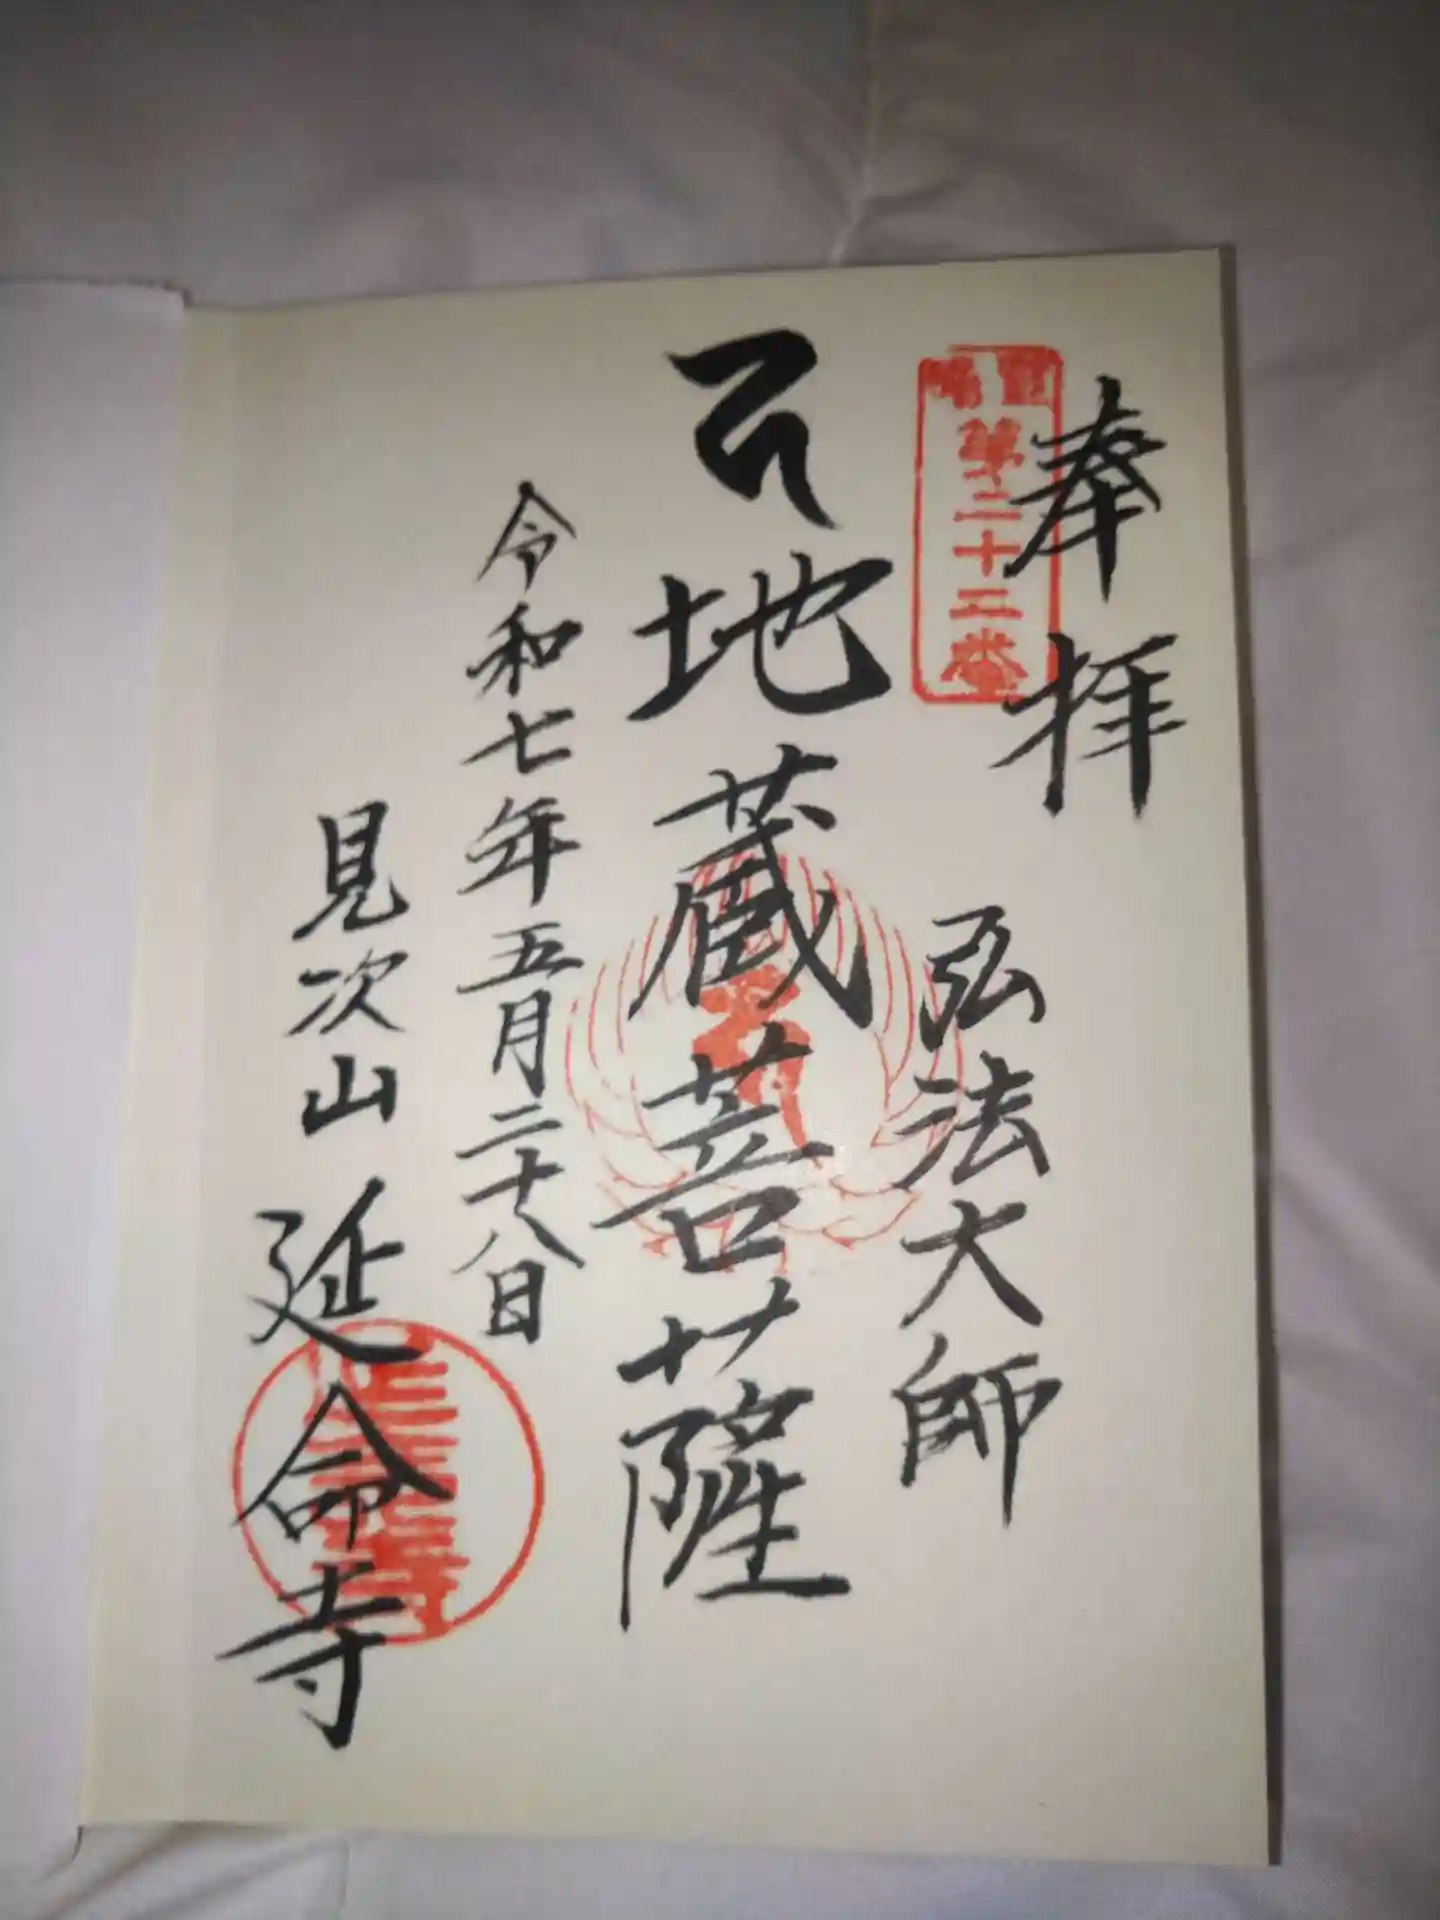 奉拝
第二十二番
弘法大師
地蔵菩薩
令和七年五月二十八日
見次山 延命寺